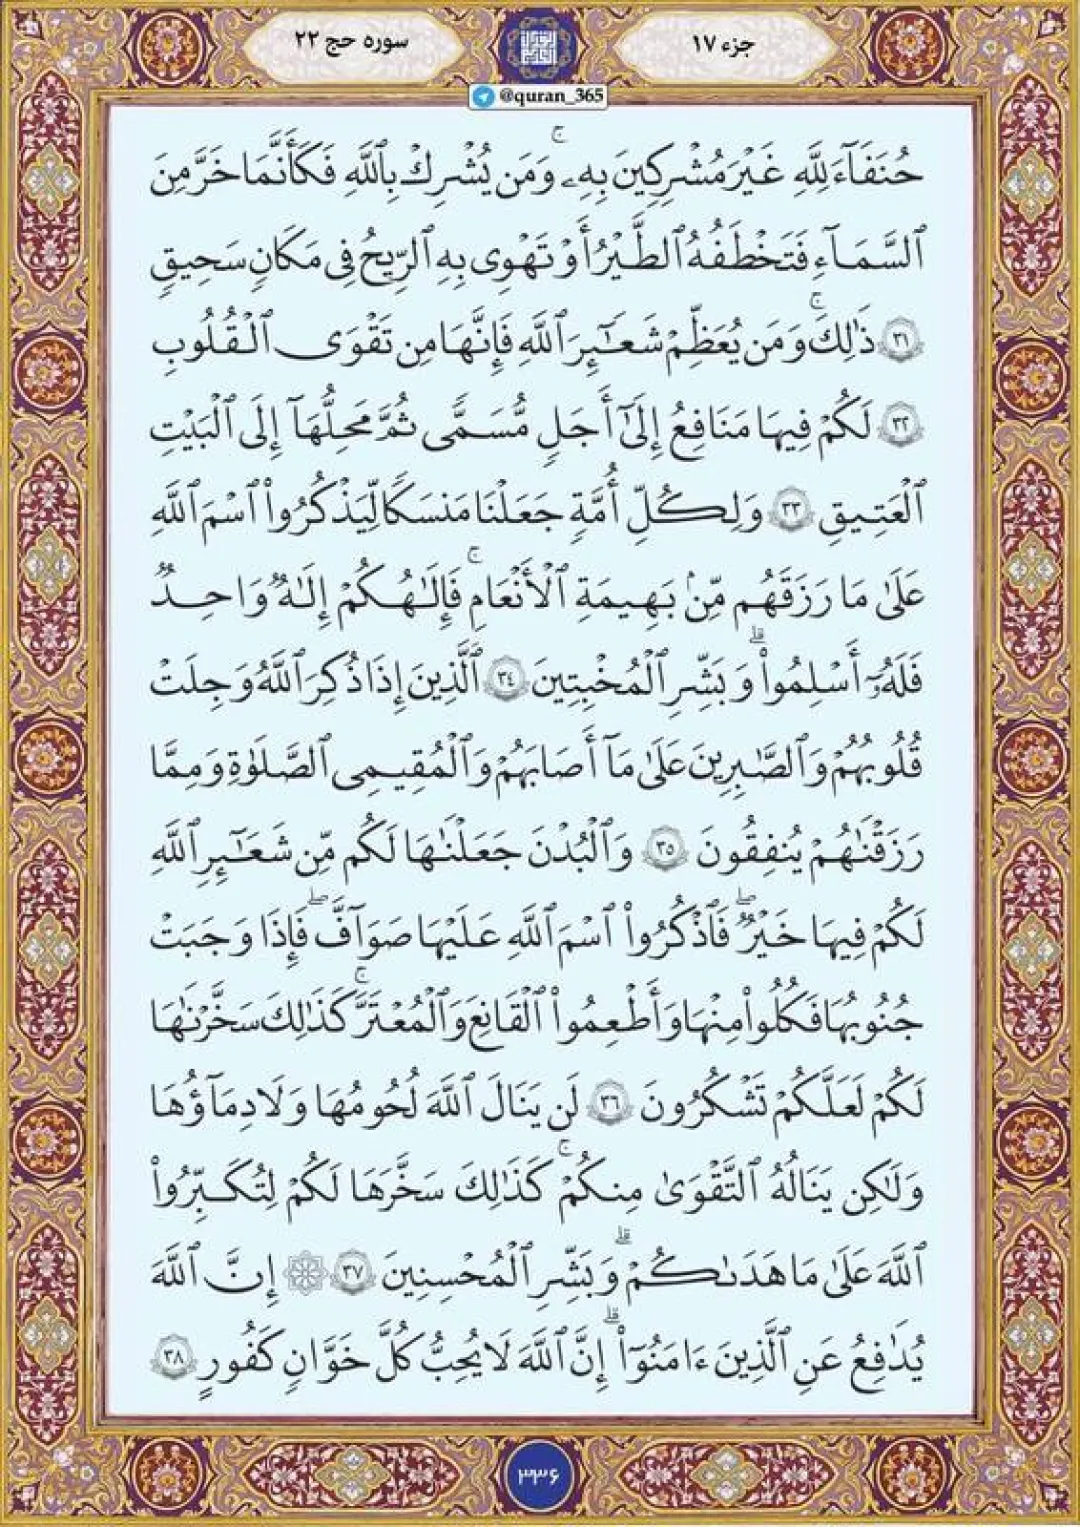 جزء ۱۷
سوره حج ۲۲
@quran_365
حُنَفَآءَ لِلَّهِ غَيْرَ مُشْرِكِينَ بِهِۦۚ وَمَن يُشْرِكْ بِٱللَّهِ فَكَأَنَّمَا خَرَّ مِنَ
ٱلسَّمَآءِ فَتَخْطَفُهُ ٱلطَّيْرُ أَوْ تَهْوِى بِهِ ٱلرِّيحُ فِى مَكَانٍ سَحِيقٍ
۳۱ ذَٰلِكَۚ وَمَن يُعَظِّمْ شَعَـٰٓئِرَ ٱللَّهِ فَإِنَّهَا مِن تَقْوَى ٱلْقُلُوبِ
۳۲ لَكُمْ فِيهَا مَنَافِعُ إِلَىٰٓ أَجَلٍ مُّسَمًّى ثُمَّ مَحِلُّهَآ إِلَى ٱلْبَيْتِ
ٱلْعَتِيقِ ۳۳ وَلِكُلِّ أُمَّةٍ جَعَلْنَا مَنسَكًا لِّيَذْكُرُوا۟ ٱسْمَ ٱللَّهِ
عَلَىٰ مَا رَزَقَهُم مِّنۢ بَهِيمَةِ ٱلْأَنْعَامِۚ فَإِلَـٰهُكُمْ إِلَـٰهٌ وَاحِدٌ
فَلَهُۥٓ أَسْلِمُوا۟ۗ وَبَشِّرِ ٱلْمُخْبِتِينَ ۳٤ ٱلَّذِينَ إِذَا ذُكِرَ ٱللَّهُ وَجِلَتْ
قُلُوبُهُمْ وَٱلصَّـٰبِرِينَ عَلَىٰ مَآ أَصَابَهُمْ وَٱلْمُقِيمِى ٱلصَّلَوٰةِ وَمِمَّا
رَزَقْنَـٰهُمْ يُنفِقُونَ ۳٥ وَٱلْبُدْنَ جَعَلْنَـٰهَا لَكُم مِّن شَعَـٰٓئِرِ ٱللَّهِ
لَكُمْ فِيهَا خَيْرٌۖ فَٱذْكُرُوا۟ ٱسْمَ ٱللَّهِ عَلَيْهَا صَوَآفَّۖ فَإِذَا وَجَبَتْ
جُنُوبُهَا فَكُلُوا۟ مِنْهَا وَأَطْعِمُوا۟ ٱلْقَانِعَ وَٱلْمُعْتَرَّۚ كَذَٰلِكَ سَخَّرْنَـٰهَا
لَكُمْ لَعَلَّكُمْ تَشْكُرُونَ ۳٦ لَن يَنَالَ ٱللَّهَ لُحُومُهَا وَلَا دِمَآؤُهَا
وَلَـٰكِن يَنَالُهُ ٱلتَّقْوَىٰ مِنكُمْۚ كَذَٰلِكَ سَخَّرَهَا لَكُمْ لِتُكَبِّرُوا۟
ٱللَّهَ عَلَىٰ مَا هَدَىٰكُمْۗ وَبَشِّرِ ٱلْمُحْسِنِينَ ۳۷ ۞ إِنَّ ٱللَّهَ
يُدَٰفِعُ عَنِ ٱلَّذِينَ ءَامَنُوٓا۟ۗ إِنَّ ٱللَّهَ لَا يُحِبُّ كُلَّ خَوَّانٍ كَفُورٍ ۳۸
۳۳۶